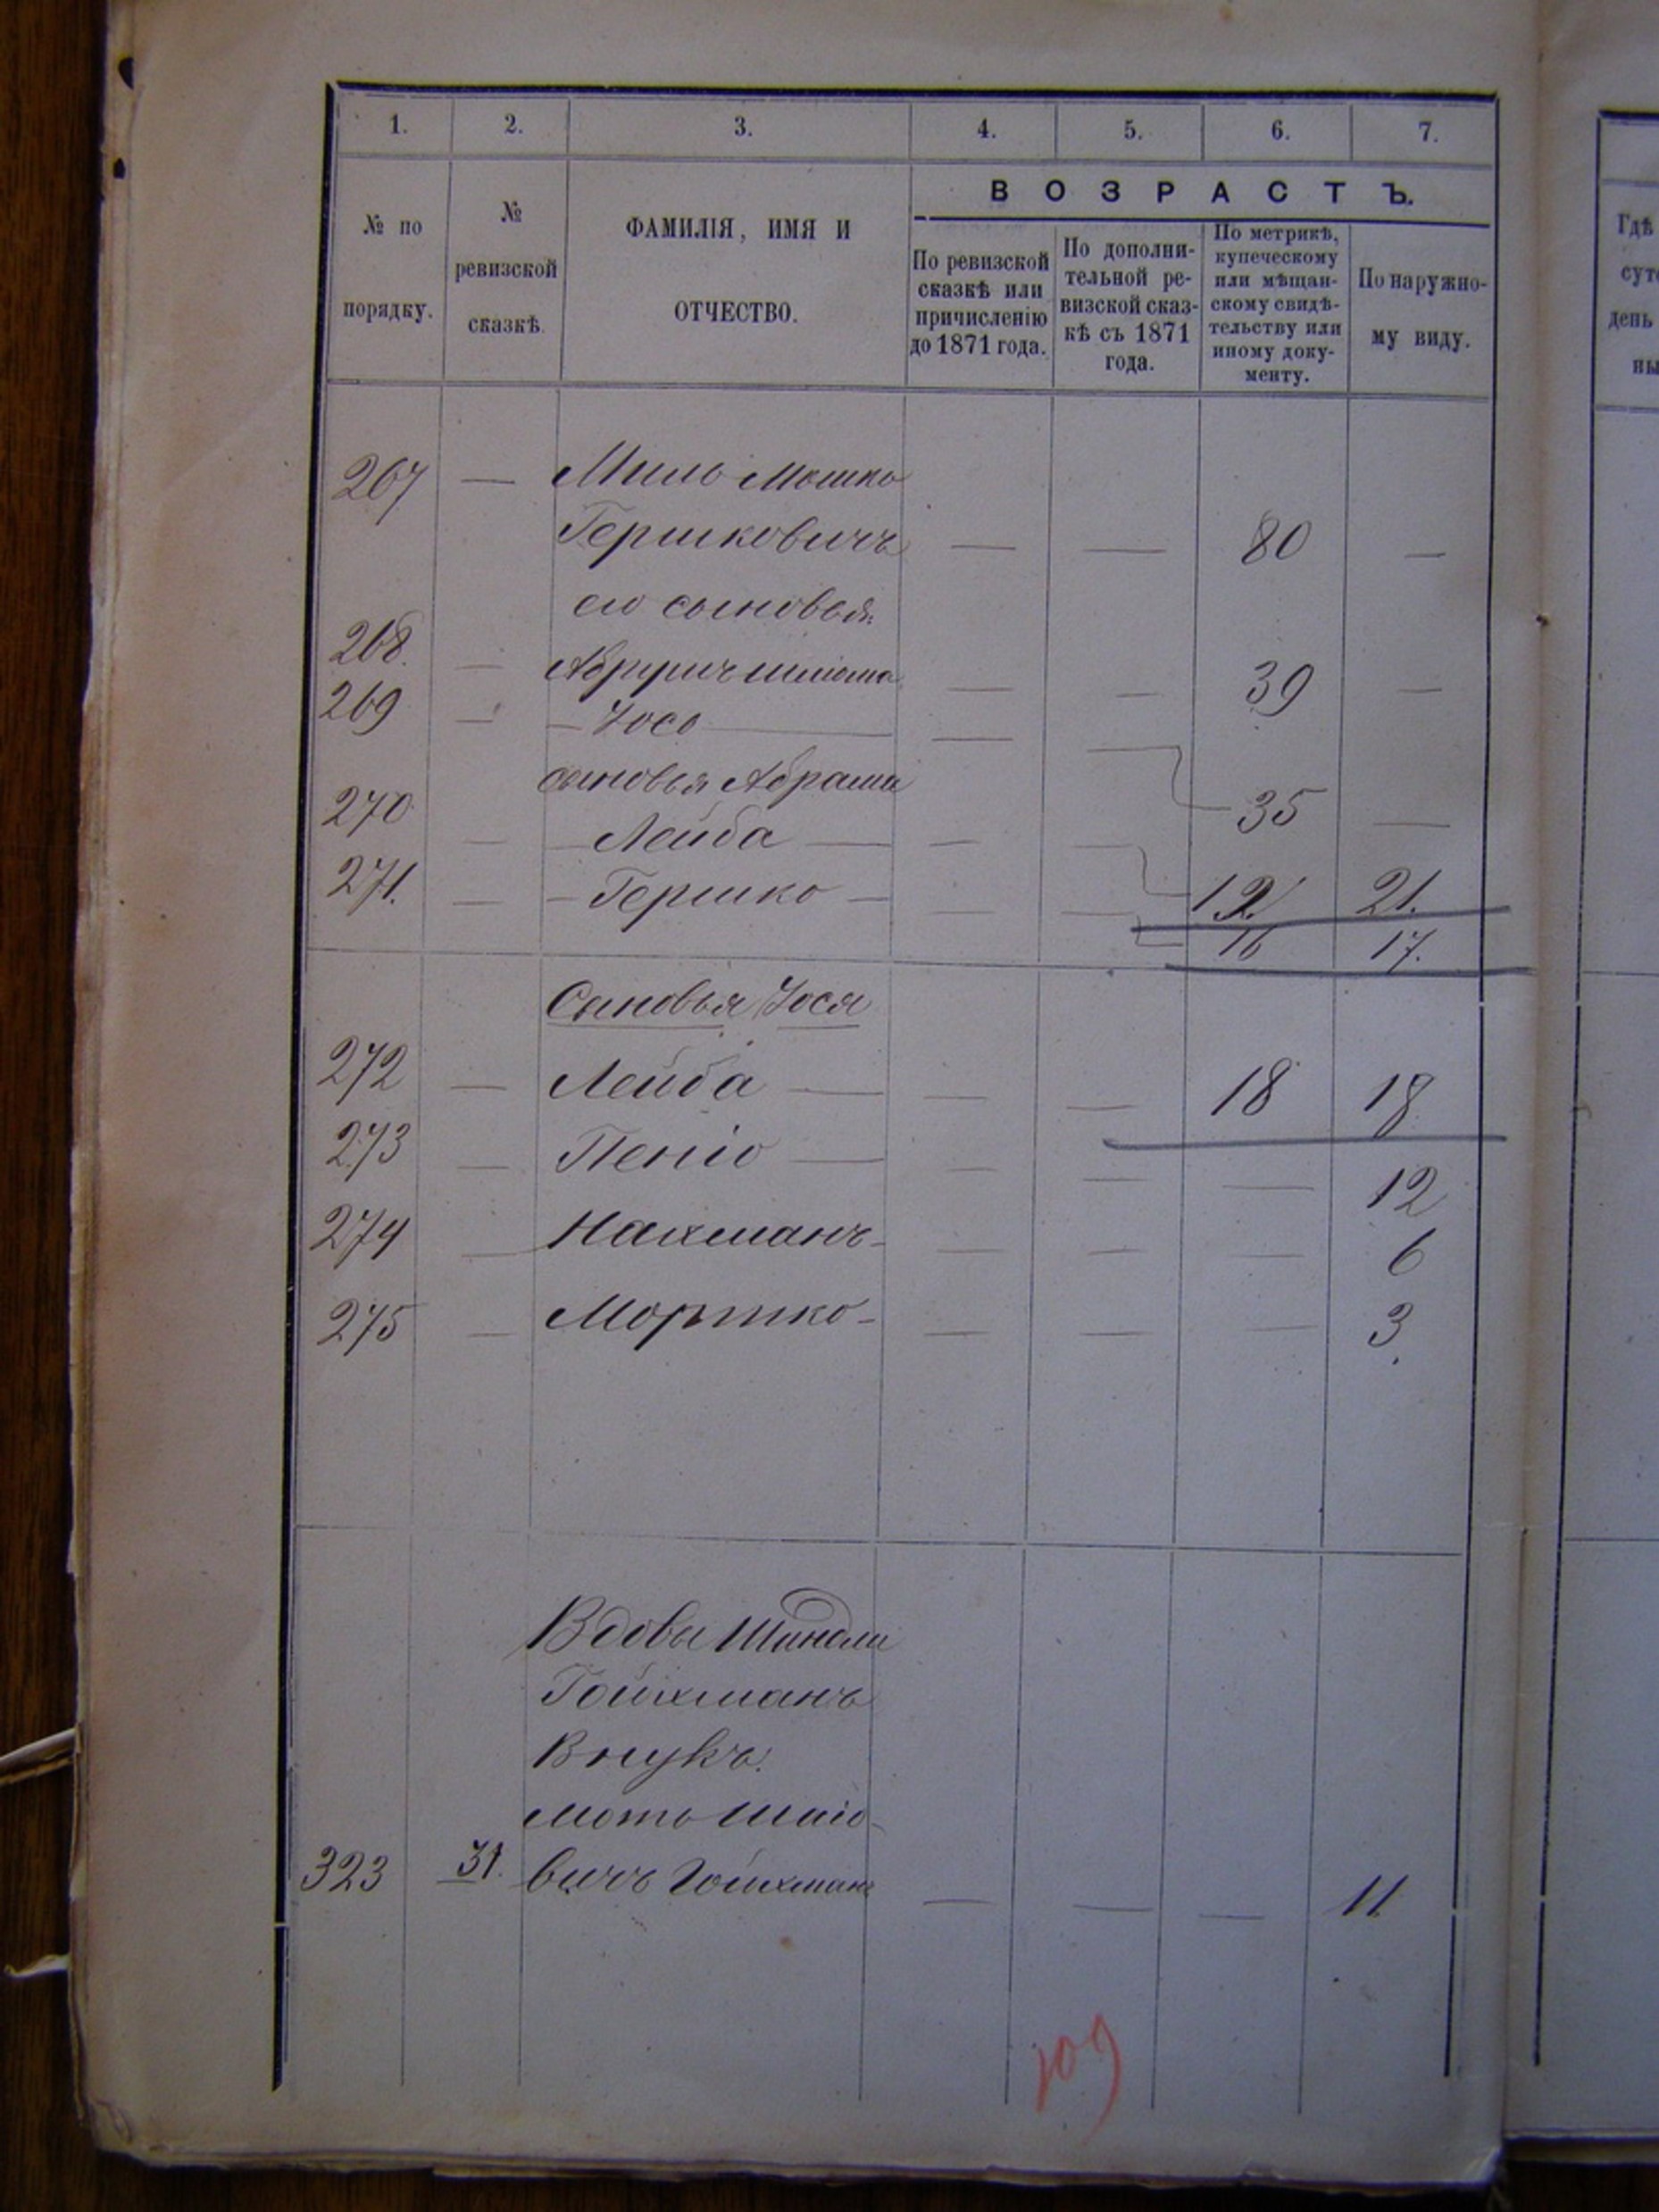 1. 2. 3. 4. 5. 6. 7.
№ по порядку.
№ ревизской сказкѣ.
ФАМИЛІЯ, ИМЯ И
ОТЧЕСТВО.
ВОЗРАСТЪ.
По ревизской
сказкѣ или
причисленію
до 1871 года.
По дополни-
тельной ре-
визской сказ-
кѣ съ 1871
года.
По метрикѣ,
купеческому
или мѣщан-
скому свидѣ-
тельству или
иному доку-
менту.
По наружно-
му виду.
Гдѣ
сут
день
ны
267 — Миль Мошко
Гершковичъ — — 80 —
его сыновья:
268. — — — 39 —
269 — — Іосо — — — 35 —
сыновья Абрама
270 — — Лейба — — — 19 21.
271. — — Гершко — — — 16 17.
Сыновья Іося
272 — Лейба — — — 18 18
273 — Пенію — — — — 12
274 — Нахманъ — — — — 6
275 — Мортко — — — — 3
Вдовы Шиндли
Гойхманъ
Внукъ:
Мотъ Шаіо-
323 31. вичъ Гойхманъ — — — 11
109